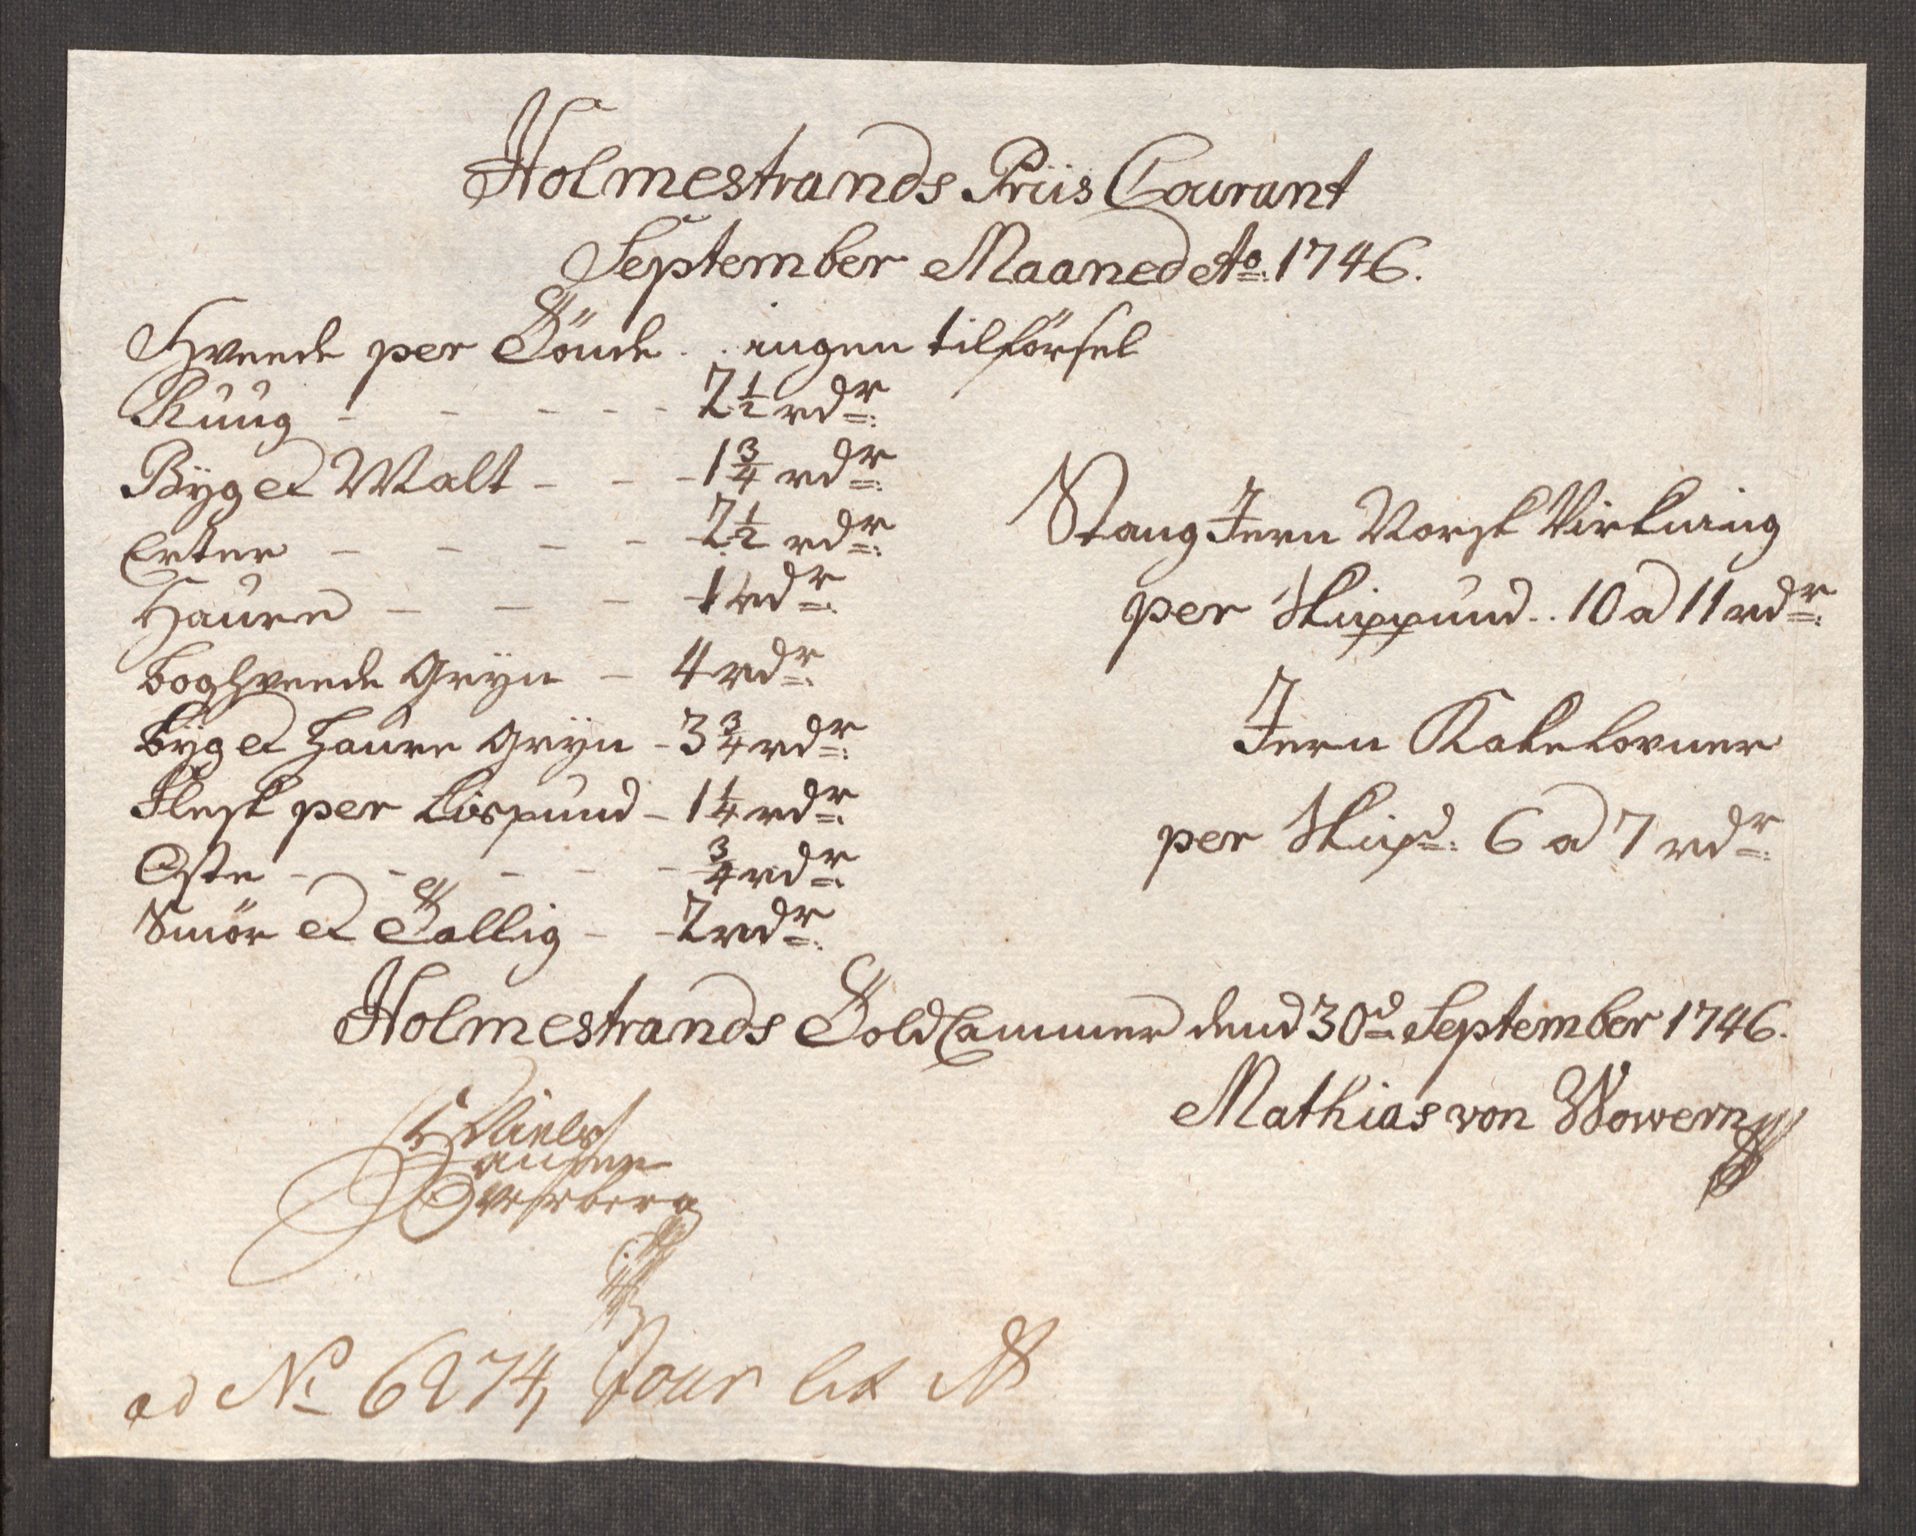 Holmestrands Priis Courant
September Maaned Ao. 1746.
Hveede per Tönde . . ingen tilförsel
Ruug - - - - - 2½ rdr.
Byg et Malt - - - 1¾ rdr.
Erter - - - - - 2½ rdr.
Haure - - - - 1 rdr.
boghveede Gryn - 4 rdr.
byg et haure Gryn - 3¾ rdr.
Flesk per Lispund - 1¼ rdr.
Oste - - - - - ¾ rdr.
Smör et Tallig - - 2 rdr.
Stang Jern Norsk Virkning
per Skippund . . 10 a 11 rdr.
Jern Kakelovner
per Skipd. 6 a 7 rdr.
Holmestrands Told Cammer dend 30d September 1746.
Mathias von Wowern
Niels
Hansen
Sverberg
ad No 6274, Jour lit